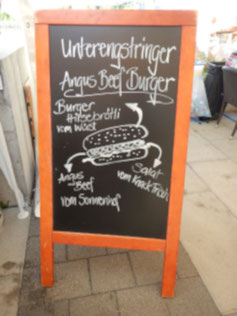 Unterengstringer
Angus Beef Burger
Burger
Hiltlbrötli
vom Wüst
Angus
Beef
vom Sonnenhof
Salat
vom